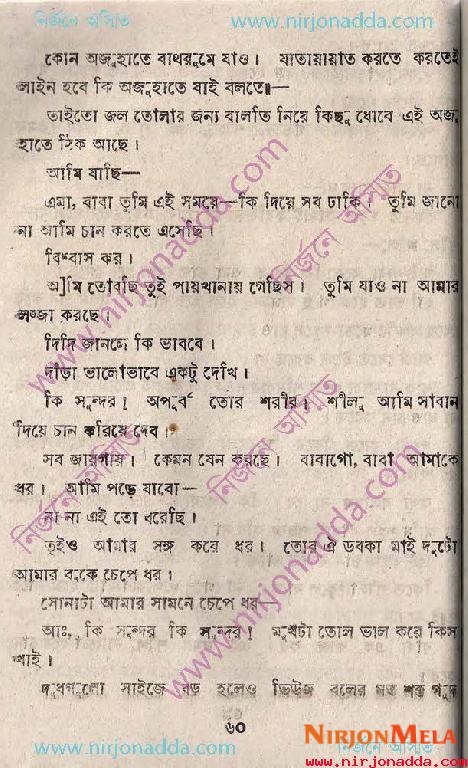 নির্জনে অস্মিত www.nirjonadda.com
কোন অজুহাতে বাথরুমে যাও। যাতায়ায়াত করতে করতেই
লাইন হবে কি অজুহাতে যাই বলতো—
তাইতো জল তোলার জন্য বালতি নিয়ে কিছু ধোবে এই অজু
হাতে ঠিক আছে।
আমি যাচ্ছি—
এমা, বাবা তুমি এই সময়ে—কি দিয়ে সব ঢাকি। তুমি জানো
না আমি চান করতে এসেছি।
বিশ্বাস কর।
আমি ভেবেছি তুই পায়খানায় গেছিস। তুমি যাও না আমার
লজ্জা করছে।
দিদি জানলে কি ভাববে।
দাঁড়া ভালোভাবে একটু দেখি।
কি সুন্দর! অপূর্ব তোর শরীর। শীলু আমি সাবান
দিয়ে চান করিয়ে দেব।
সব জায়গায়। কেমন যেন করছে। বাবাগো, বাবা আমাকে
ধর। আমি পড়ে যাবো—
না না এই তো ধরেছি।
তুইও আমার সঙ্গ করে ধর। তোর ঐ ডবকা মাই দুটো
আমার বুকে চেপে ধর।
সোনাটা আমার সামনে চেপে ধর—
আঃ, কি সুন্দর কি সুন্দর! মুখটা তোল ভাল করে কিস
খাই।
দুধগুলো সাইজে বড় হলেও বলের মত শক্ত
৬০
NIRJONMELA
www.nirjonadda.com নির্জনে অস্মিত www.nirjonadda.com